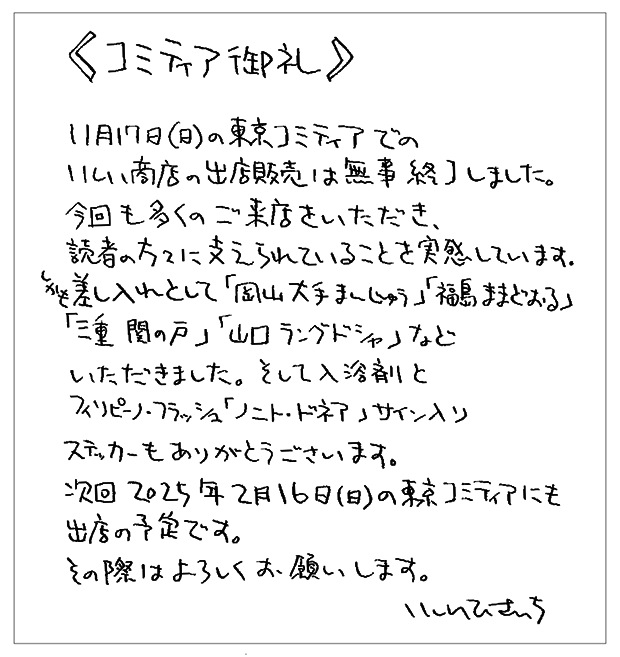 《コミティア御礼》
11月17日(日)の東京コミティアでの
いしい商店の出店販売は無事終了しました。
今回も多くのご来店をいただき、
読者の方々に支えられていることを実感しています。
差し入れとして「岡山 大手まんじゅう」「福島 ままどおる」
「三重 関の戸」「山口 ラングドシャ」など
いただきました。そして入浴剤と
フィリピーノ・フラッシュ「ノニト・ドネア」サイン入り
ステッカーもありがとうございます。
次回2025年2月16日(日)の東京コミティアにも
出店の予定です。
その際はよろしくお願いします。
いしいひさいち